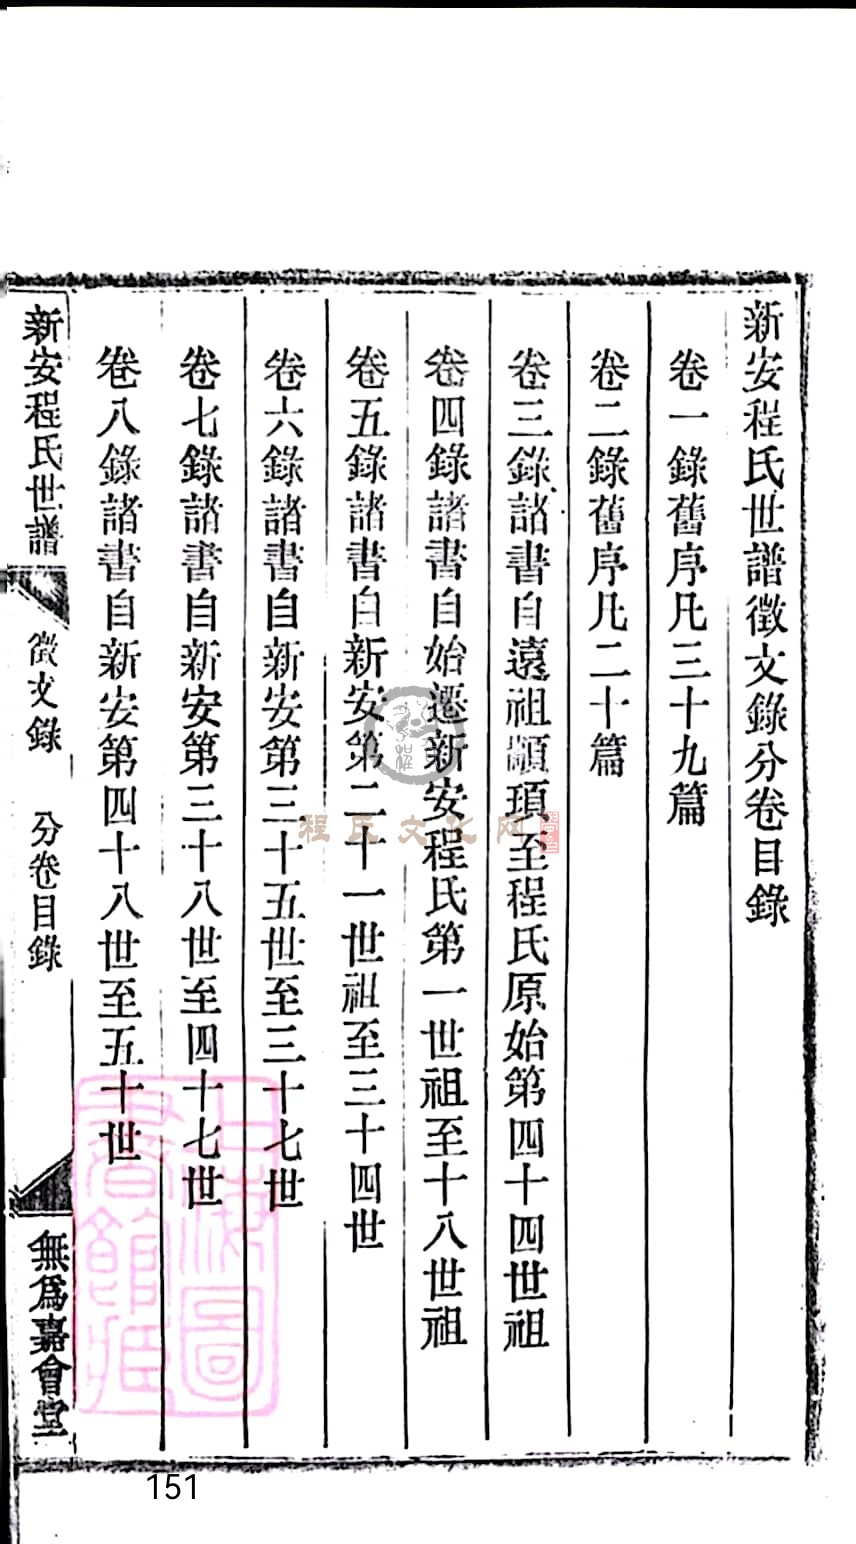 新安程氏世譜徵文錄分卷目錄
卷一錄舊序凡三十九篇
卷二錄舊序凡二十篇
卷三錄諸書自遠祖顓頊至程氏原始第四十四世祖
卷四錄諸書自始遷新安程氏第一世祖至十八世祖
卷五錄諸書自新安第二十一世祖至三十四世
卷六錄諸書自新安第三十五世至三十七世
卷七錄諸書自新安第三十八世至四十七世
卷八錄諸書自新安第四十八世至五十世
新安程氏世譜
徵文錄
分卷目錄
無爲嘉會堂
程氏文化网
上海圖書館藏
151